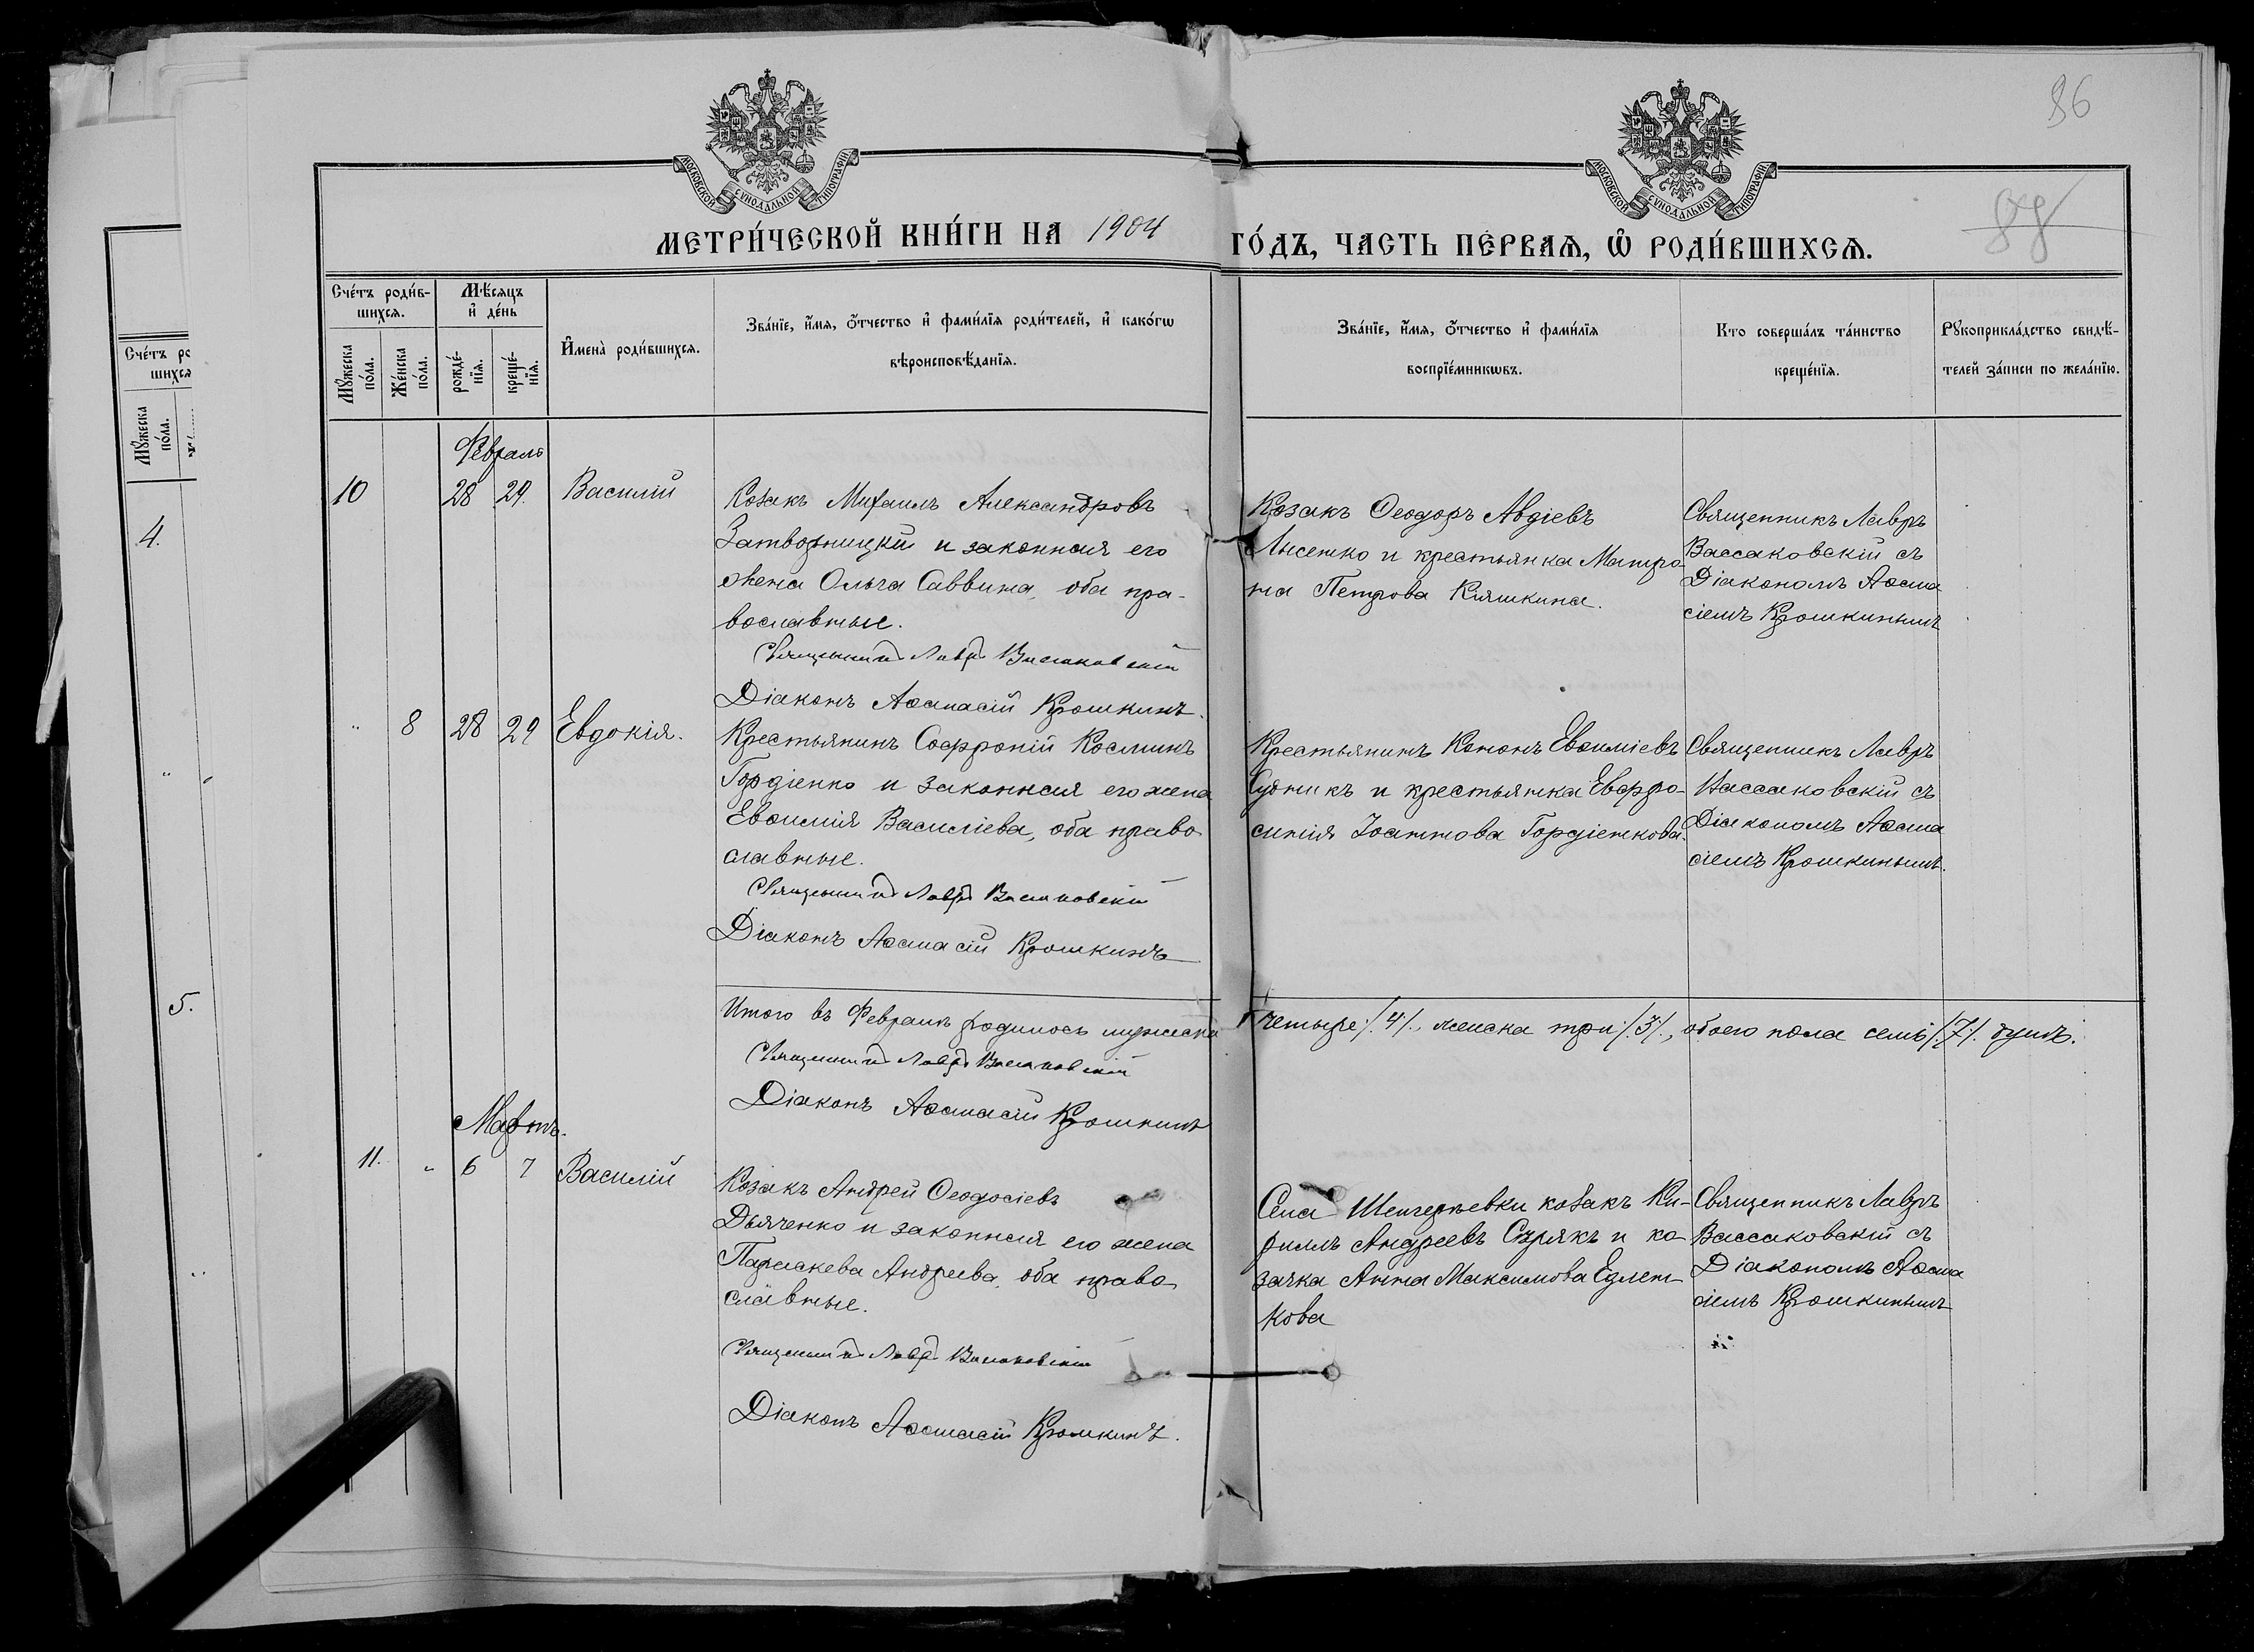 86
88
МОСКОВСКОЙ СУНОДАЛЬНОЙ ТИПОГРАФІИ.
МОСКОВСКОЙ СУНОДАЛЬНОЙ ТИПОГРАФІИ.
МЕТРИ́ЧЕСКОЙ КНИ́ГИ НА 1904 ГО́ДЪ, ЧАСТЬ ПЕ́РВАѦ, Ѡ РОДИ́ВШИХСѦ.
Сче́тъ роди́в-
шихсѧ.
Мꙋ́жеска
по́ла.
Же́нска
по́ла.
Мѣ́сѧцъ
и҆ де́нь
рожде́-
нїѧ.
креще́-
нїѧ.
И҆мена̀ роди́вшихсѧ.
Зва́нїе, и҆́мѧ, ѻ҆́тчество и҆ фами́лїѧ роди́телей, и҆ како́гѡ
вѣроисповѣ́данїѧ.
Зва́нїе, и҆́мѧ, ѻ҆́тчество и҆ фами́лїѧ
воспрїе́мникѡвъ.
Кто соверша́лъ та́инство
креще́нїѧ.
Рꙋкоприкла́дство свидѣ́-
телей за́писи по жела́нїю.
Сче́тъ ро
шихсѧ
Мꙋ́жеска
по́ла.
4.
5.
Февраль
10
28 29.
Василій
Козакъ Михаилъ Александровъ
Затворницкій и законная его
жена Ольга Саввина, оба пра-
вославные.
Священникъ Лавръ Вассаковскій
Діаконъ Аѳанасій Крошкинъ.
Козакъ Ѳеодоръ Авдіевъ
Лысенко и крестьянка Матро-
на Петрова Кияшкина.
Священникъ Лавръ
Вассаковскій съ
Діакономъ Аѳана
сіемъ Крошкинымъ
" 8 28 29
Евдокія.
Крестьянинъ Софроній Косминъ
Гордіенко и законная его жена
Евѳимія Василіева, оба право-
славные.
Священникъ Лавръ Вассаковскій
Діаконъ Аѳанасій Крошкинъ
Крестьянинъ Кононъ Евѳиміевъ
Судникъ и крестьянка Евфро-
синія Іоаннова Гордіенкова.
Священникъ Лавръ
Вассаковскій съ
Діакономъ Аѳана
сіемъ Крошкинымъ.
Итого въ Февралѣ родилось мужеска четыре /.4/., женска три /.3/., обоего пола семь /.7/. душъ.
Священникъ Лавръ Вассаковскій
Діаконъ Аѳанасій Крошкинъ
Мартъ.
11. " 6 7
Василій
Козакъ Андрей Ѳеодосіевъ
Дьяченко и законная его жена
Параскева Андреева, оба право-
славные.
Священникъ Лавръ Вассаковскій
Діаконъ Аѳанасій Крошкинъ.
Села козакъ Ки-
риллъ Андреевъ и ко-
зачка Анна Максимова Едлен-
кова
Священникъ Лавръ
Вассаковскій съ
Діакономъ Аѳана
сіемъ Крошкинымъ